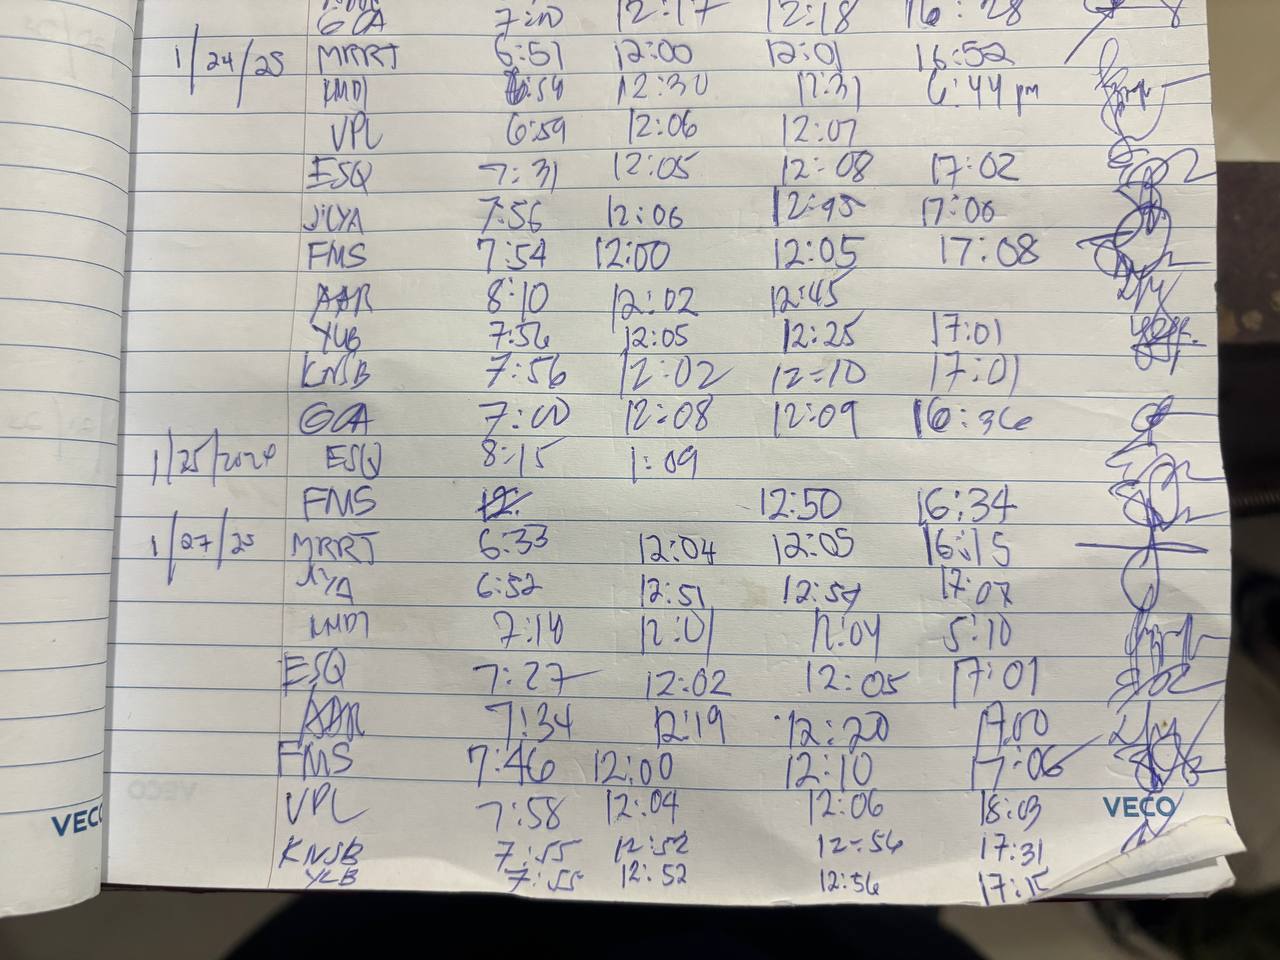 GCA 7:00 12:17 12:18 16:28
1/24/25 MRRT 6:51 12:00 12:01 16:52
KMDT 6:54 12:30 12:31 6:44 pm
VPL 6:59 12:06 12:07
ESQ 7:31 12:05 12:08 17:02
JIYA 7:56 12:06 12:45 17:06
FMS 7:54 12:00 12:05 17:08
AAR 8:10 12:02 12:45
YLB 7:56 12:05 12:25 17:01
KNSB 7:56 12:02 12:10 17:01
GCA 7:00 12:08 12:09 16:36
1/25/2024 ESQ 8:15 1:09
FMS 12:50 16:34
1/27/25 MRRT 6:33 12:04 12:05 16:15
JIYA 6:52 12:51 12:57 17:07
KMDT 7:10 12:01 12:04 5:10
ESQ 7:27 12:02 12:05 17:01
AAR 7:34 12:19 12:20 17:00
FMS 7:46 12:00 12:10 17:06
VPL 7:58 12:04 12:06 18:03
VECO
KNSB 7:55 12:52 12:56 17:31
YLB 7:55 12:52 12:56